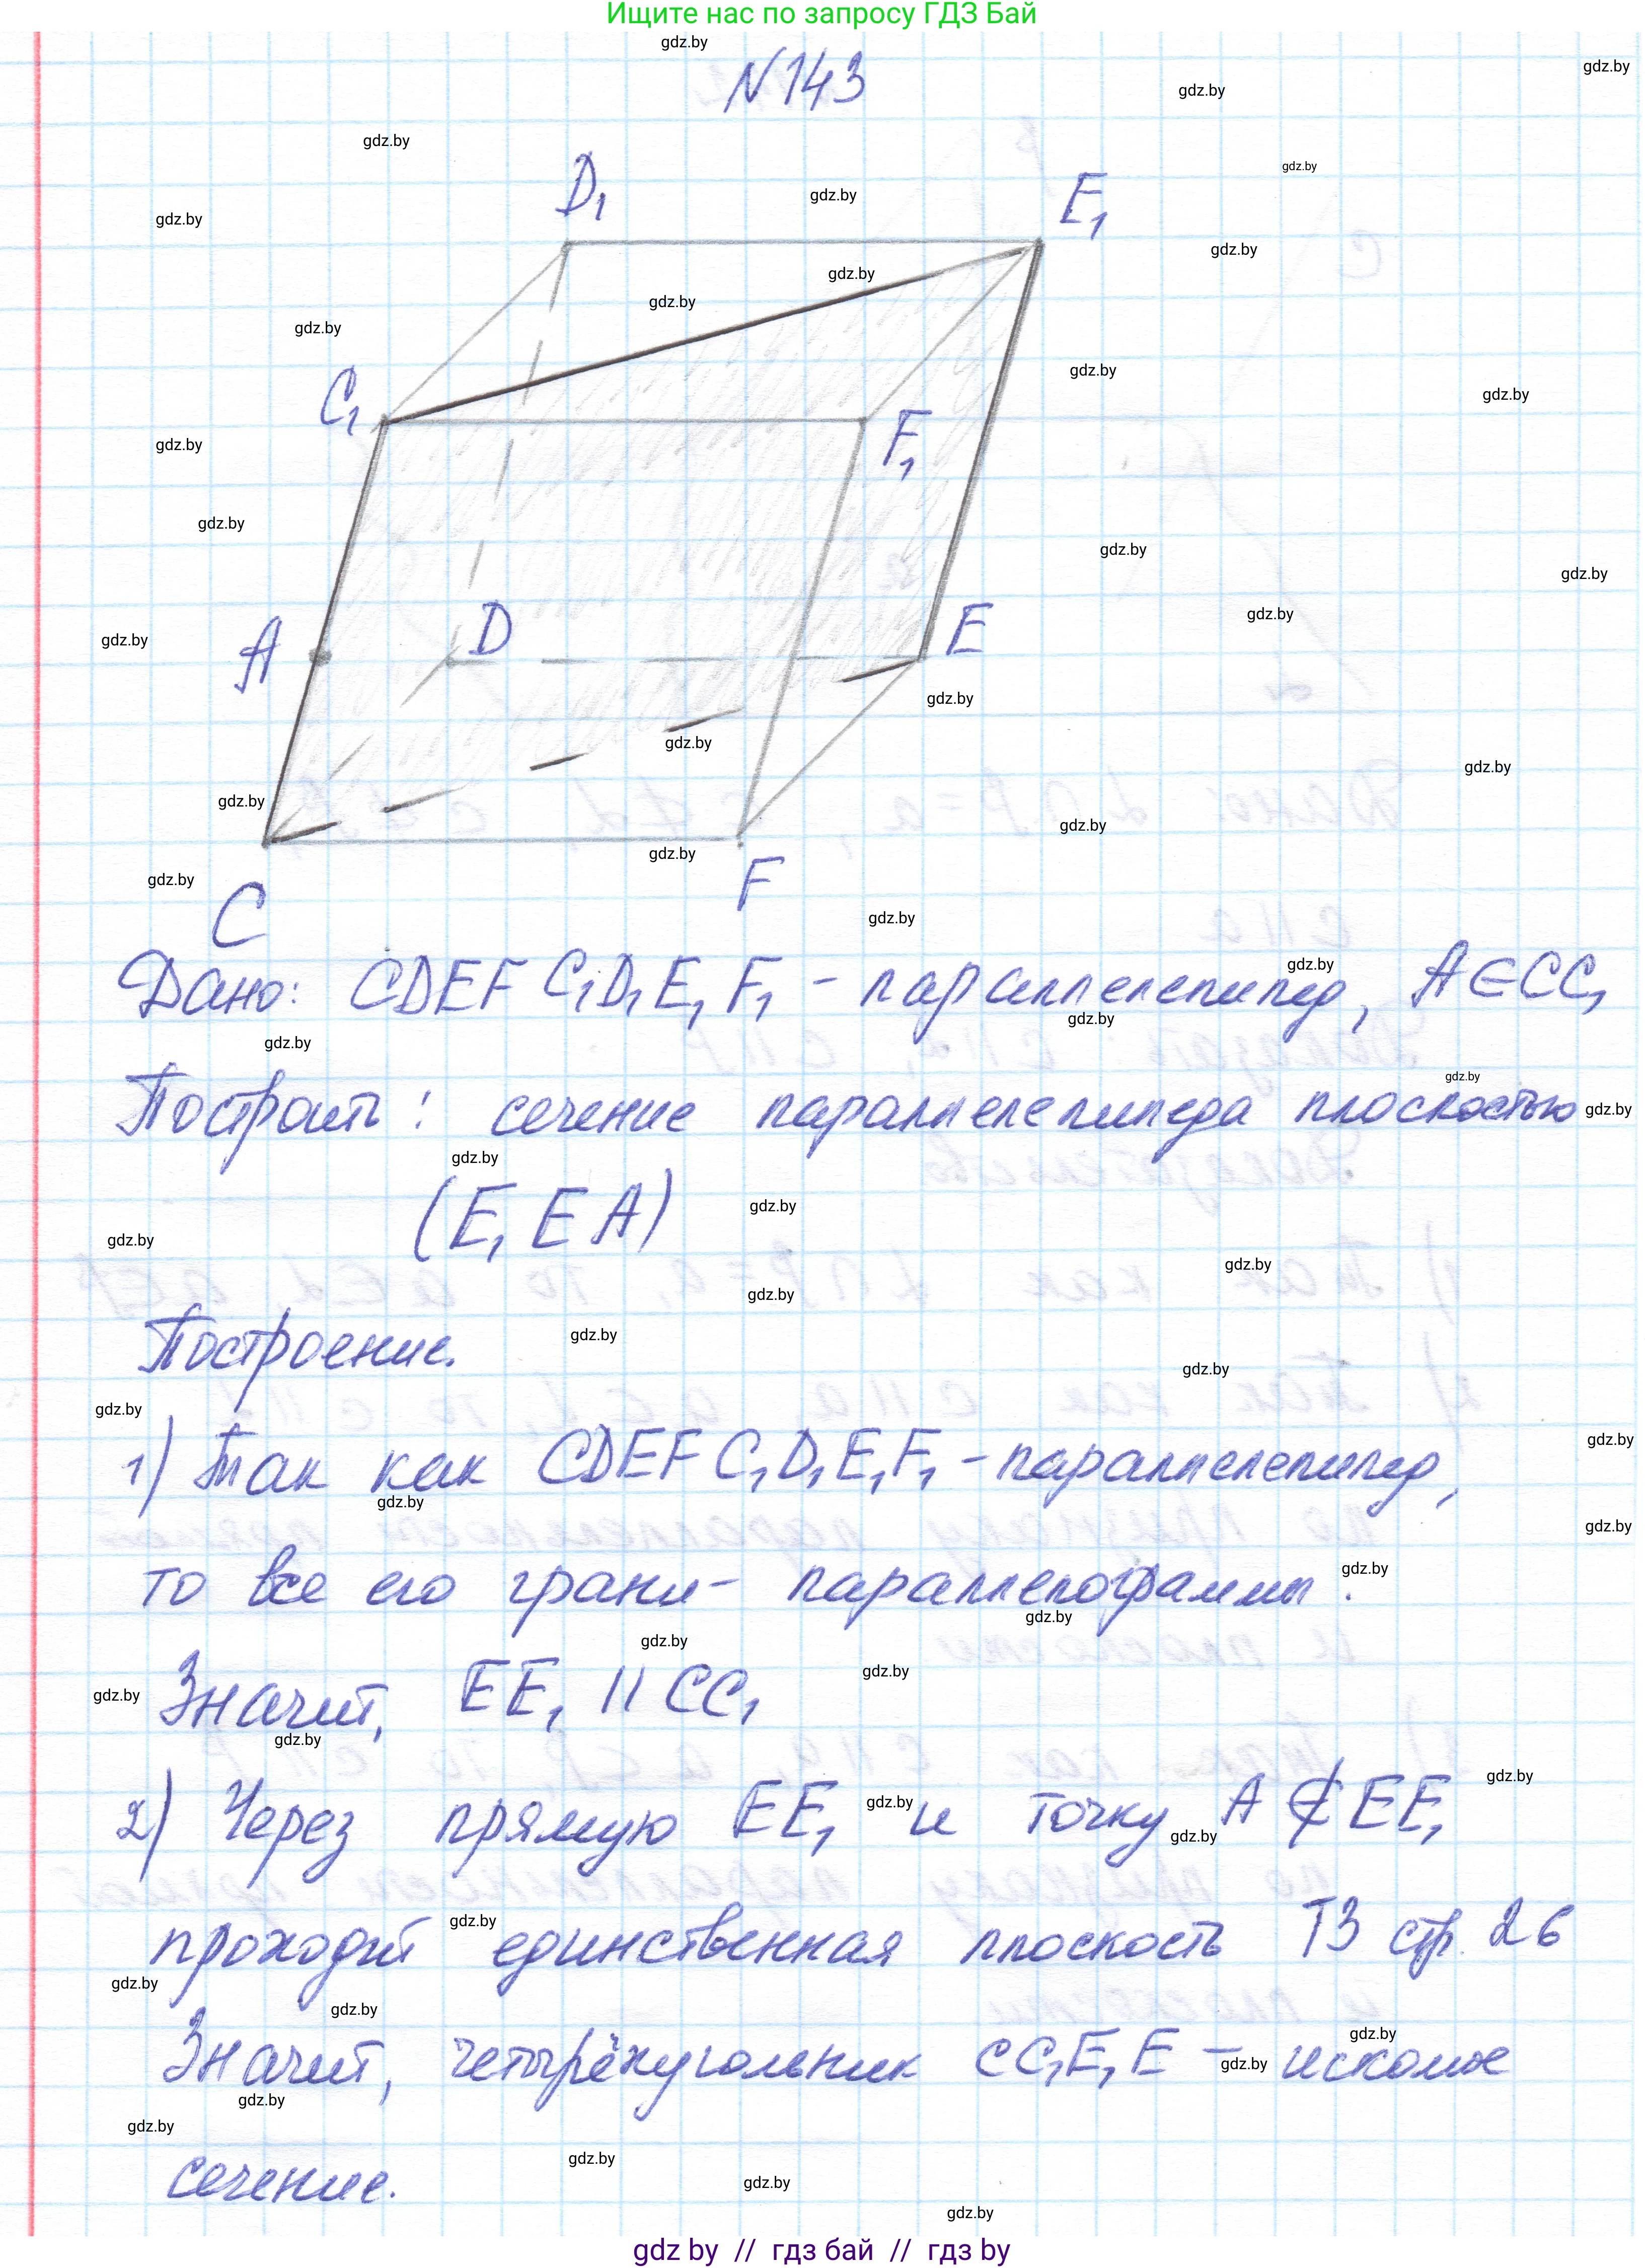 Ищите нас по запросу ГДЗ Бай
N 143
D₁
E₁
C₁
F₁
A
D
E
C
F
Дано: CDEF C₁D₁E₁F₁ - параллелепипед, A∈CC₁
Построить: сечение параллелепипеда плоскостью
(E₁EA)
Построение.
1) Так как CDEF C₁D₁E₁F₁ - параллелепипед,
то все его грани - параллелограммы.
Значит, EE₁ || CC₁
2) Через прямую EE₁ и точку A ∉ EE₁
проходит единственная плоскость Т3 стр. 26
Значит, четырёхугольник CC₁E₁E - искомое
сечение.
gdz by // гдз бай // гдз by